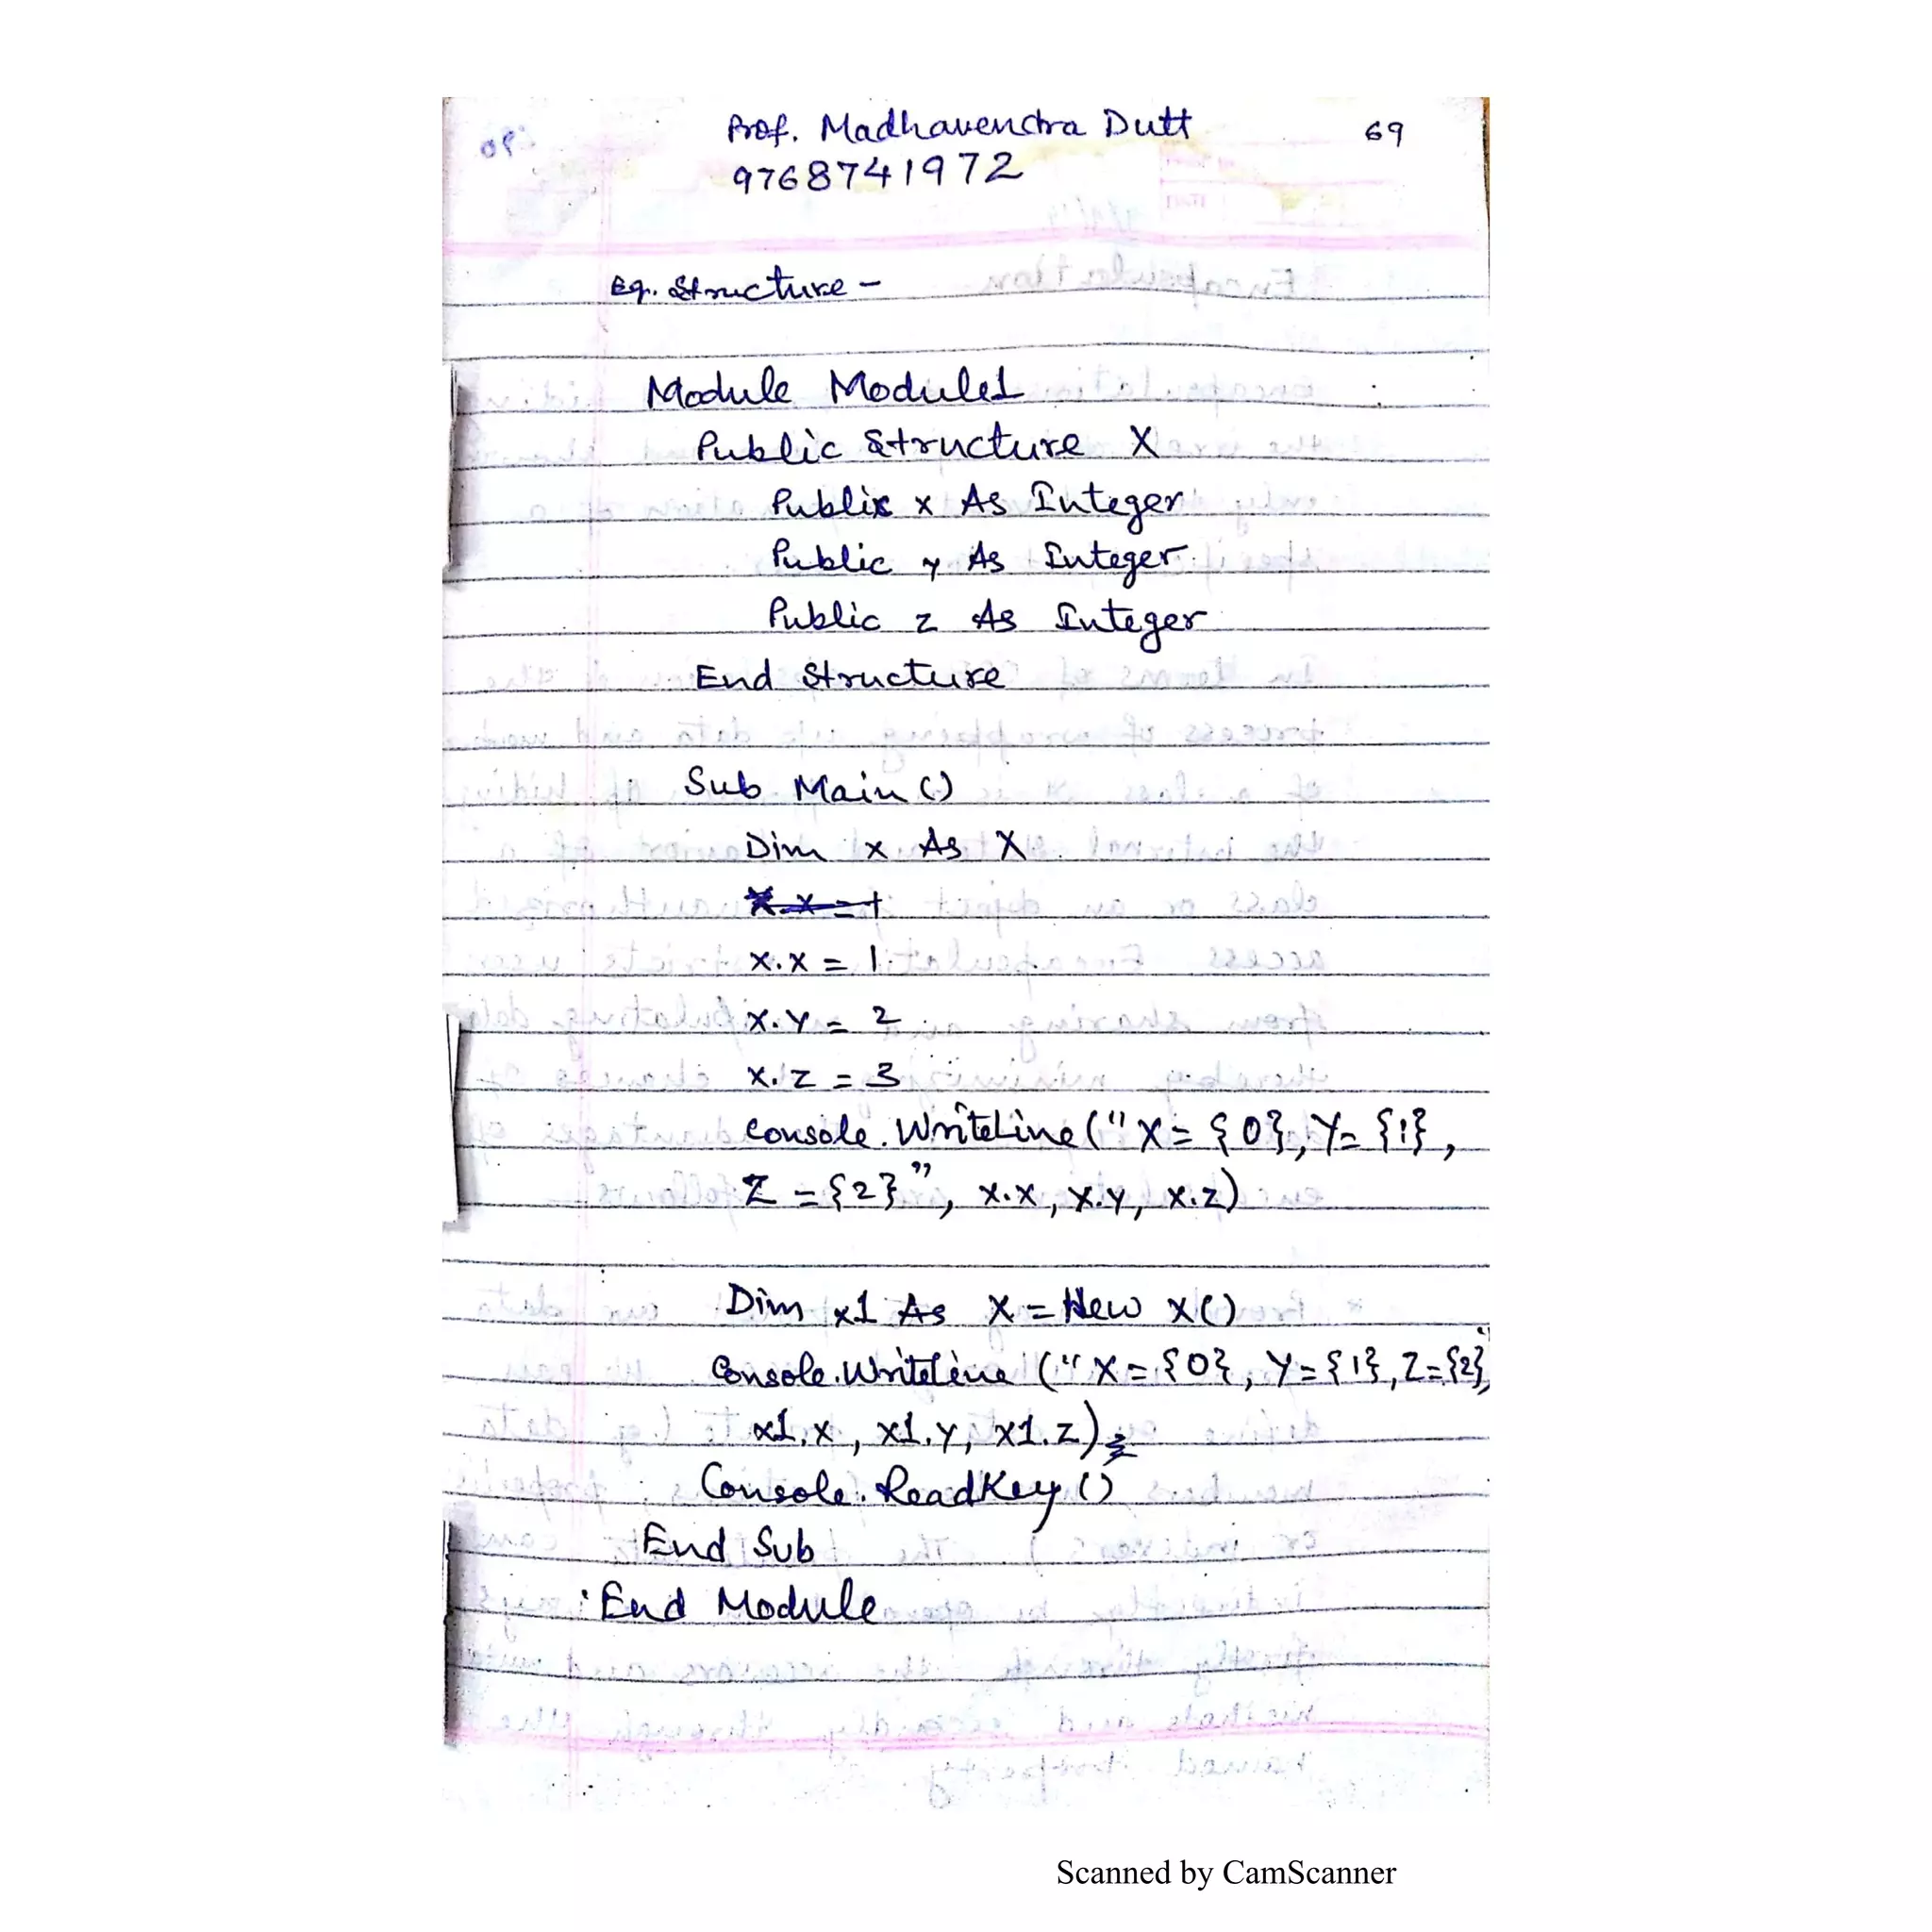 Prof. Madhavendra Dutt 69
9768741972
Eg. Structure -
Module Module1
Public Structure X
Public x As Integer
Public y As Integer
Public z As Integer
End Structure
Sub Main ()
Dim x As X
x.x = 1
x.x = 1
x.y = 2
x.z = 3
Console.WriteLine("X = {0}, Y = {1},
Z = {2}", x.x, x.y, x.z)
Dim x1 As X = New X()
Console.WriteLine ("X = {0}, Y = {1}, Z = {2}",
x1.x, x1.y, x1.z)
Console.ReadKey ()
End Sub
End Module
Scanned by CamScanner